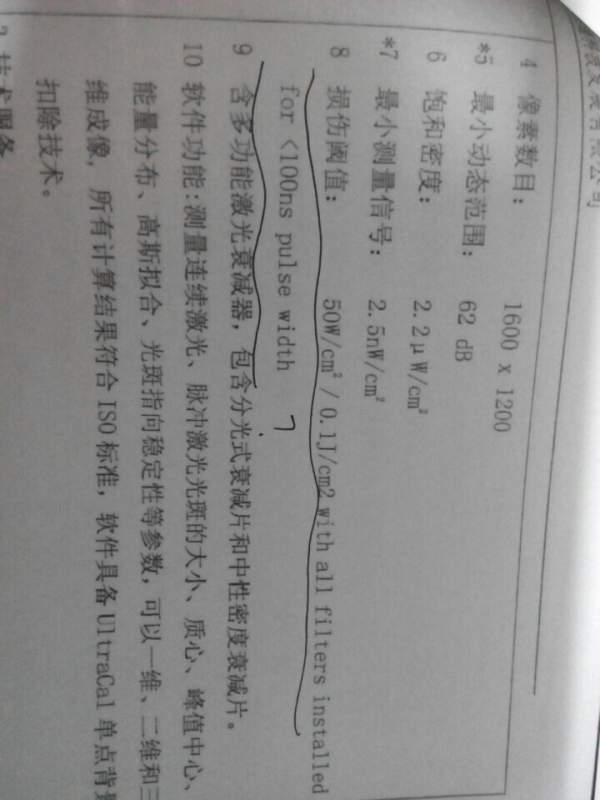 4 像素数目： 1600 x 1200
*5 最小动态范围： 62 dB
6 饱和密度： 2.2μW/cm²
*7 最小测量信号： 2.5nW/cm²
8 损伤阈值： 50W/cm² / 0.1J/cm2 with all filters installed
for <100ns pulse width
9 含多功能激光衰减器，包含分光式衰减片和中性密度衰减片。
10 软件功能:测量连续激光、脉冲激光光斑的大小、质心、峰值中心、
能量分布、高斯拟合、光斑指向稳定性等参数，可以一维、二维和三
维成像，所有计算结果符合ISO标准，软件具备UltraCal单点背景
扣除技术。
技术服务